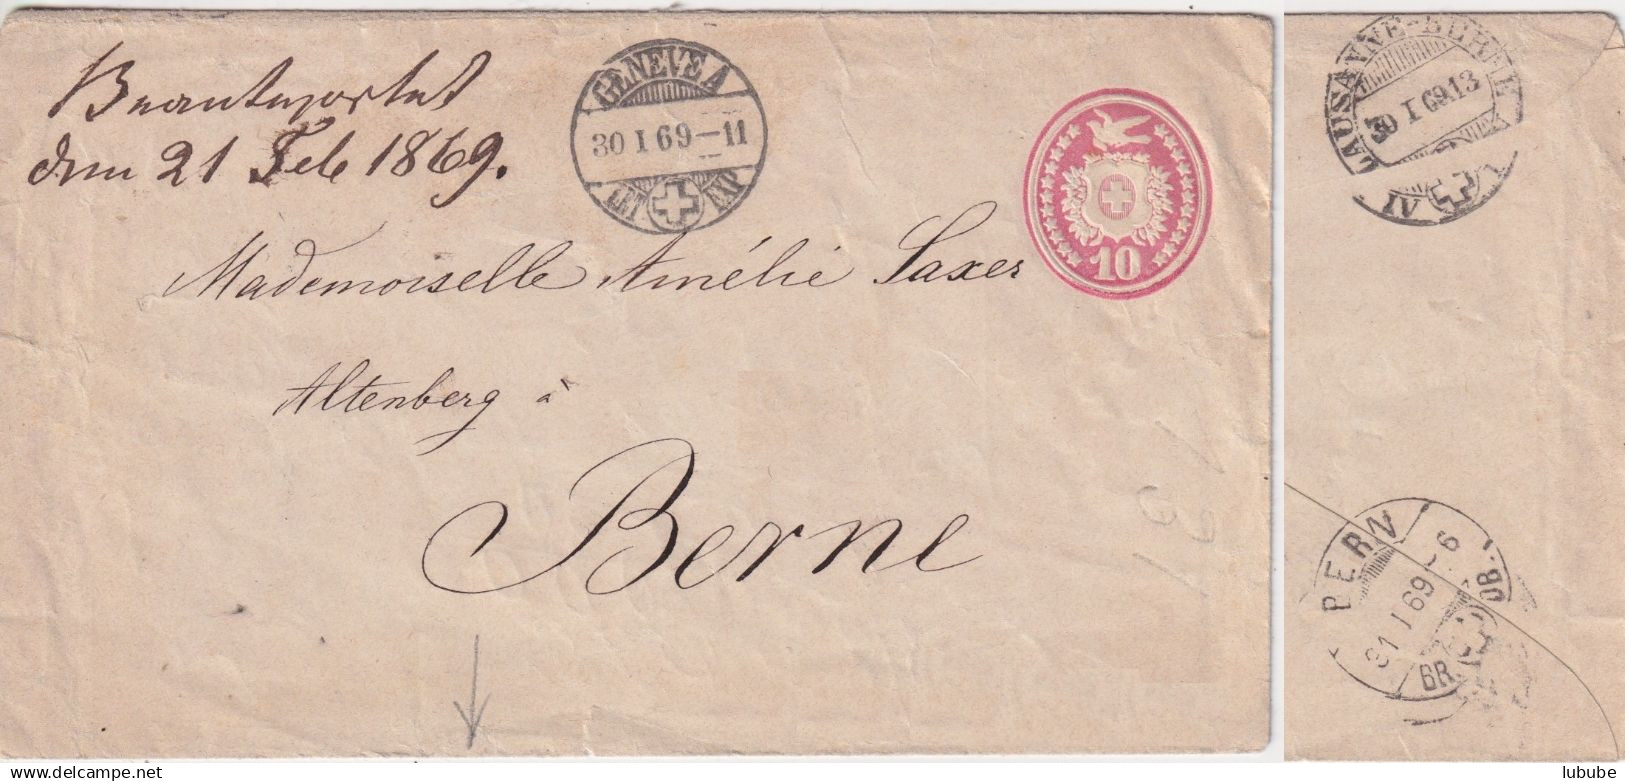 Beantwortet
den 21 Feb 1869.
GENEVE A
30 I 69–11
LET EXP
10
Mademoiselle Amélie Saxer
Altenberg à
Berne
LAUSANNE-BERNE
30 I 69 13
BERN
31 I 69–6
BR.
OB.
lubube